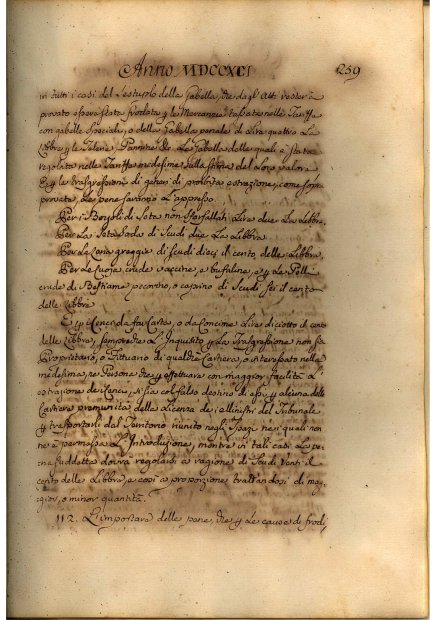 Anno MDCCXCI 259
in tutti i casi del sesturlo della Gabella, che dagl' Atti resterà
provato essere stata frodata, e le Mercanzie tassate nelle Tariffe
con gabelle speciale, o della Gabella penale di Lire quattro La
Libbra, e le Telerie, Pannine &c. La Gabella delle quali è stata
regolata nelle Tariffe medesime sulla stima del Loro valore
E le trasgressioni di generi di proibita estrazione, come sopra
provate, Le pene saranno L'appresso
Per i Bozzoli di Seta non sfarfallati Lire due La Libbra.
Per La Seta Soda di Scudi due La Libbra
Per La Lana greggia di Scudi dieci il cento delle Libbre,
Per Le Cuoja crude vaccine, e bufaline, e Le Pelli
crude di Bestiame pecorino, o caprino di Scudi sei il cento
delle Libbre
E i Cenci da far Carta, o da Concime Lire diciotto il cento
delle Libbre, sempreche L'Inquisito La Trasgressione non sia
Proprietario, o Fittuario di qualche Cartiera, o interessato nella
medesima, Persona che effettuare con maggior facilità l'
estrazione dei Cenci, sia col falso destino di essi alcuna delle
Cartiere premunita della Licenza dei Ministri del Tribunale
trasportarli dal Territorio riunito negli Spazi nei quali non
ne è permessa L'Introduzione, mentre in tali casi La pe-
na suddetta dovrà regolarsi a ragione di Scudi Venti il
cento delle Libbre, e così a proporzione trattandosi di mag-
gior, o minor quantità.
112. L'importare delle pene, che Le cause di frodi,